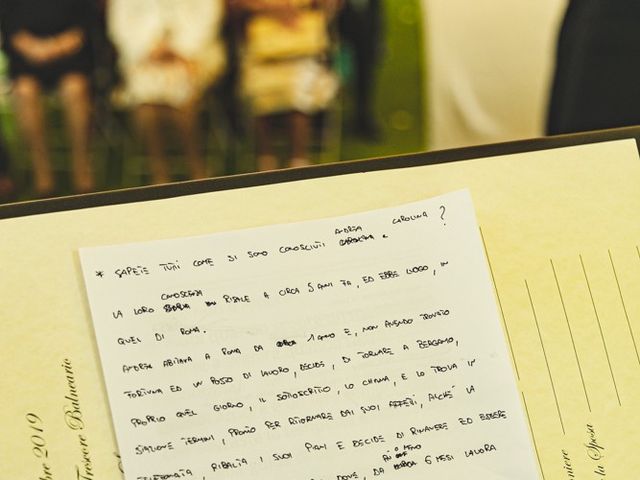 * SAPETE TUTTI COME SI SONO CONOSCIUTI ANDREA E CAROLINA ?
LA LORO CONOSCENZA RISALE A CIRCA 5 ANNI FA, ED EBBE LUOGO, IN
QUEL DI ROMA.
ANDREA ABITAVA A ROMA DA 1 ANNO E, NON AVENDO TROVATO
FORTUNA ED UN POSTO DI LAVORO, DECIDE, DI TORNARE A BERGAMO,
PROPRIO QUEL GIORNO, IL SOTTOSCRITTO, LO CHIAMA, E LO TROVA IN
STAZIONE TERMINI, PRONTO PER RITORNARE DAI SUOI AFFETTI, ALCHÈ LA
TELEFONATA, RIBALTA I SUOI PIANI E DECIDE DI RIMANERE ED ESSERE
DOVE, DA 6 MESI LAVORA
bre 2019
Trescore Balneario
la Sposa